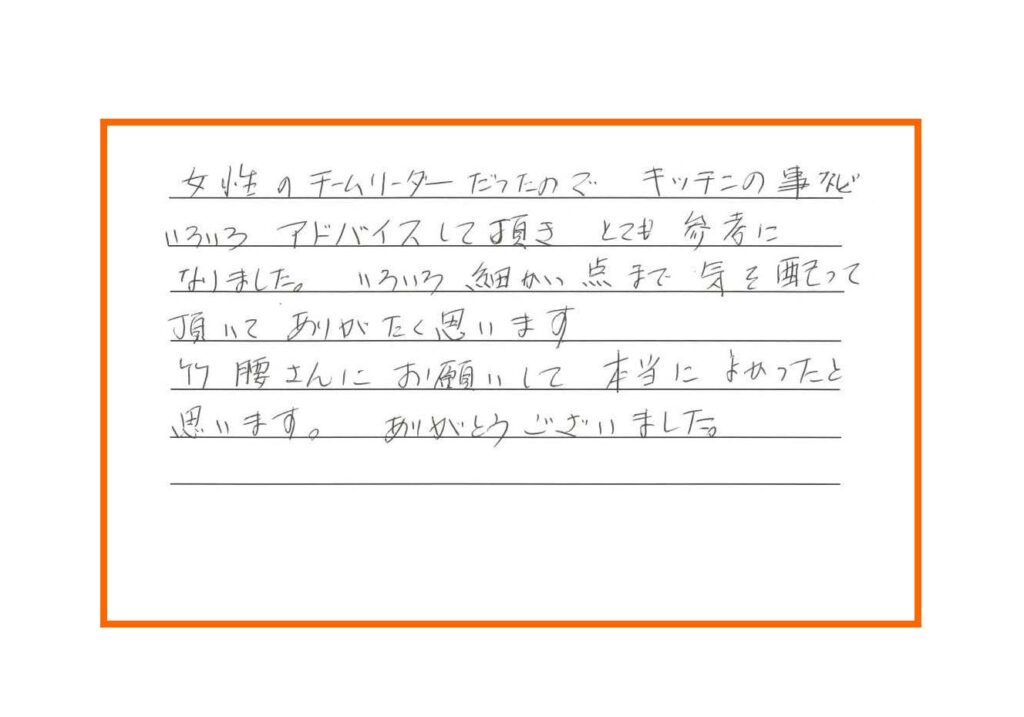 女性のチームリーダーだったので キッチンの事など
いろいろ アドバイスして頂き とても 参考に
なりました。 いろいろ 細かい 点まで 気を配って
頂いて ありがたく思います
竹腰さんに お願いして 本当に よかったと
思います。 ありがとうございました。